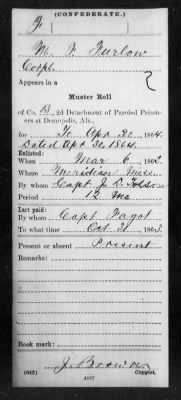 (CONFEDERATE.)
F
M. V. Furlow
Corpl.
Appears in a
Muster Roll
of Co. B, 2d Detachment of Paroled Prison-
ers at Demopolis, Ala.,
for To Apr 30 1864.
Dated Apr 30, 1864.
Enlisted:
When Mar 6 1862.
Where Meridian Miss.
By whom Capt. J. R.
Period 12 Mo
Last paid:
By whom Capt Fagot
To what time Oct 31 1863.
Present or absent Present
Remarks:
Book mark:
J.
(642) 4957 Copyist.